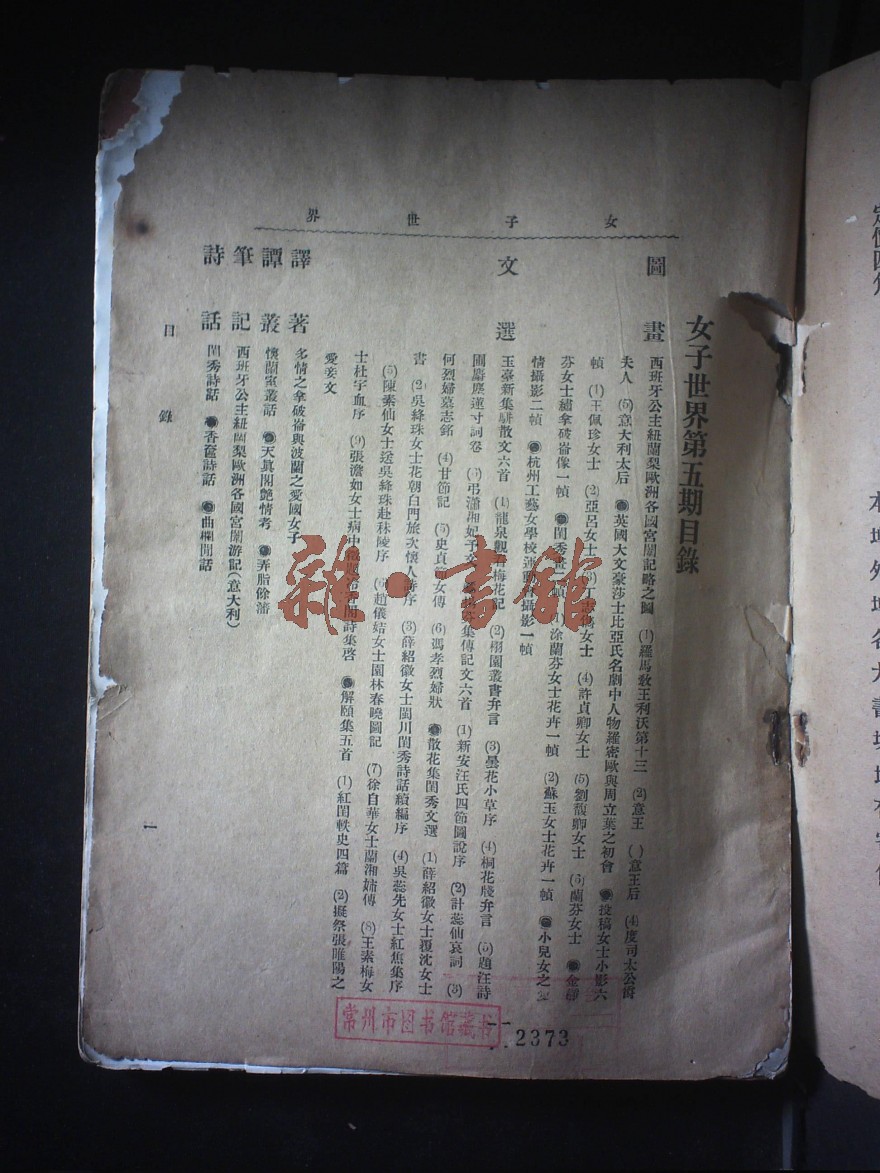 女子世界
女子世界第五期目錄
圖畫
西班牙公主紐蘭梨歐洲各國宮闈記略之圖 (1)羅馬教王利沃第十三 (2)意王 ( )意王后 (4)度司太公爵
夫人 (5)意大利太后 ●英國大文豪莎士比亞氏名劇中人物羅密歐與周立葉之初會 ●投稿女士小影六
幀 (1)王佩珍女士 (2)亞呂女士 (3)丁志儁女士 (4)許貞卿女士 (5)劉馥卿女士 (6)蘭芬女士 ●金靜
芬女士繡拿破崙像一幀 ●閨秀畫二幀 (1)涂蘭芬女士花卉一幀 (2)蘇玉女士花卉一幀 ●小兒女之
情攝影二幀 ●杭州工藝女學校運動會攝影一幀
文選
玉臺新集駢散文六首 (1)龍泉觀看梅花記 (2)栩園叢書弁言 (3)曇花小草序 (4)桐花牋弁言 (5)題汪詩
圃麝塵蓮寸詞卷 (6)弔瀟湘妃子文 集傳記文六首 (1)新安汪氏四節圖說序 (2)計蕊仙哀詞 (3)
何烈婦墓志銘 (4)甘節記 (5)史貞女傳 (6)馮孝烈婦狀 ●散花集閨秀文選 (1)薛紹徽女士覆沈女士
書 (2)吳絳珠女士花朝白門旅次懷人詩序 (3)薛紹徽女士閩川閨秀詩話續編序 (4)吳蕊先女士紅焦集序
(5)陳素仙女士送吳絳珠赴秣陵序 (6)趙儀姞女士園林春曉圖記 (7)徐自華女士蘭湘姊傳 (8)王素梅女
士杜宇血序 (9)張澹如女士病中 詩集啓 ●解頤集五首 (1)紅閨軼史四篇 (2)擬祭張睢陽之
愛妾文
譯著
多情之拿破崙與波蘭之愛國女子
譚叢
懷蘭室叢話 ●天眞閣艷情考 ●弄脂餘瀋
筆記
西班牙公主紐蘭梨歐洲各國宮闈游記(意大利)
詩話
閨秀詩話 ●香奩詩話 ●曲欄閒話
目錄
一
雜·書館
常州市图书馆藏书
2373
本埠外埠各大書坊均有寄售